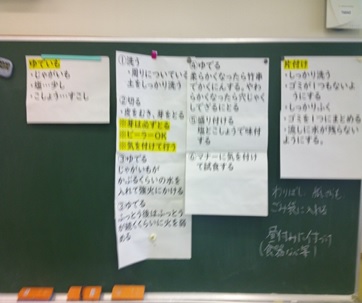 ゆでいも
・じゃがいも
・塩…少し
・こしょう…すこし
①洗う
・周りについている
土をしっかり洗う
②切る
・皮をむき、芽をとる
※芽は必ずとる
※ピーラーOK
※気を付けて行う
③ゆでる
じゃがいもが
かぶるくらいの水を
入れて強火にかける
③ゆでる
ふっとう後はふっとう
が続くくらいに火を弱
める
④ゆでる
柔らかくなったら竹串
でかくにんする。やわ
らかくなったら穴じゃく
しでざるにとる
⑤盛り付ける
塩とこしょうで味付
する
⑥マナーに気を付け
て試食する
片付け
・しっかり洗う
・ゴミが1つもないよ
うにする
・しっかりふく
・ゴミを1つにまとめる
・流しに水が残らない
ようにする。
ごみ袋に入れる